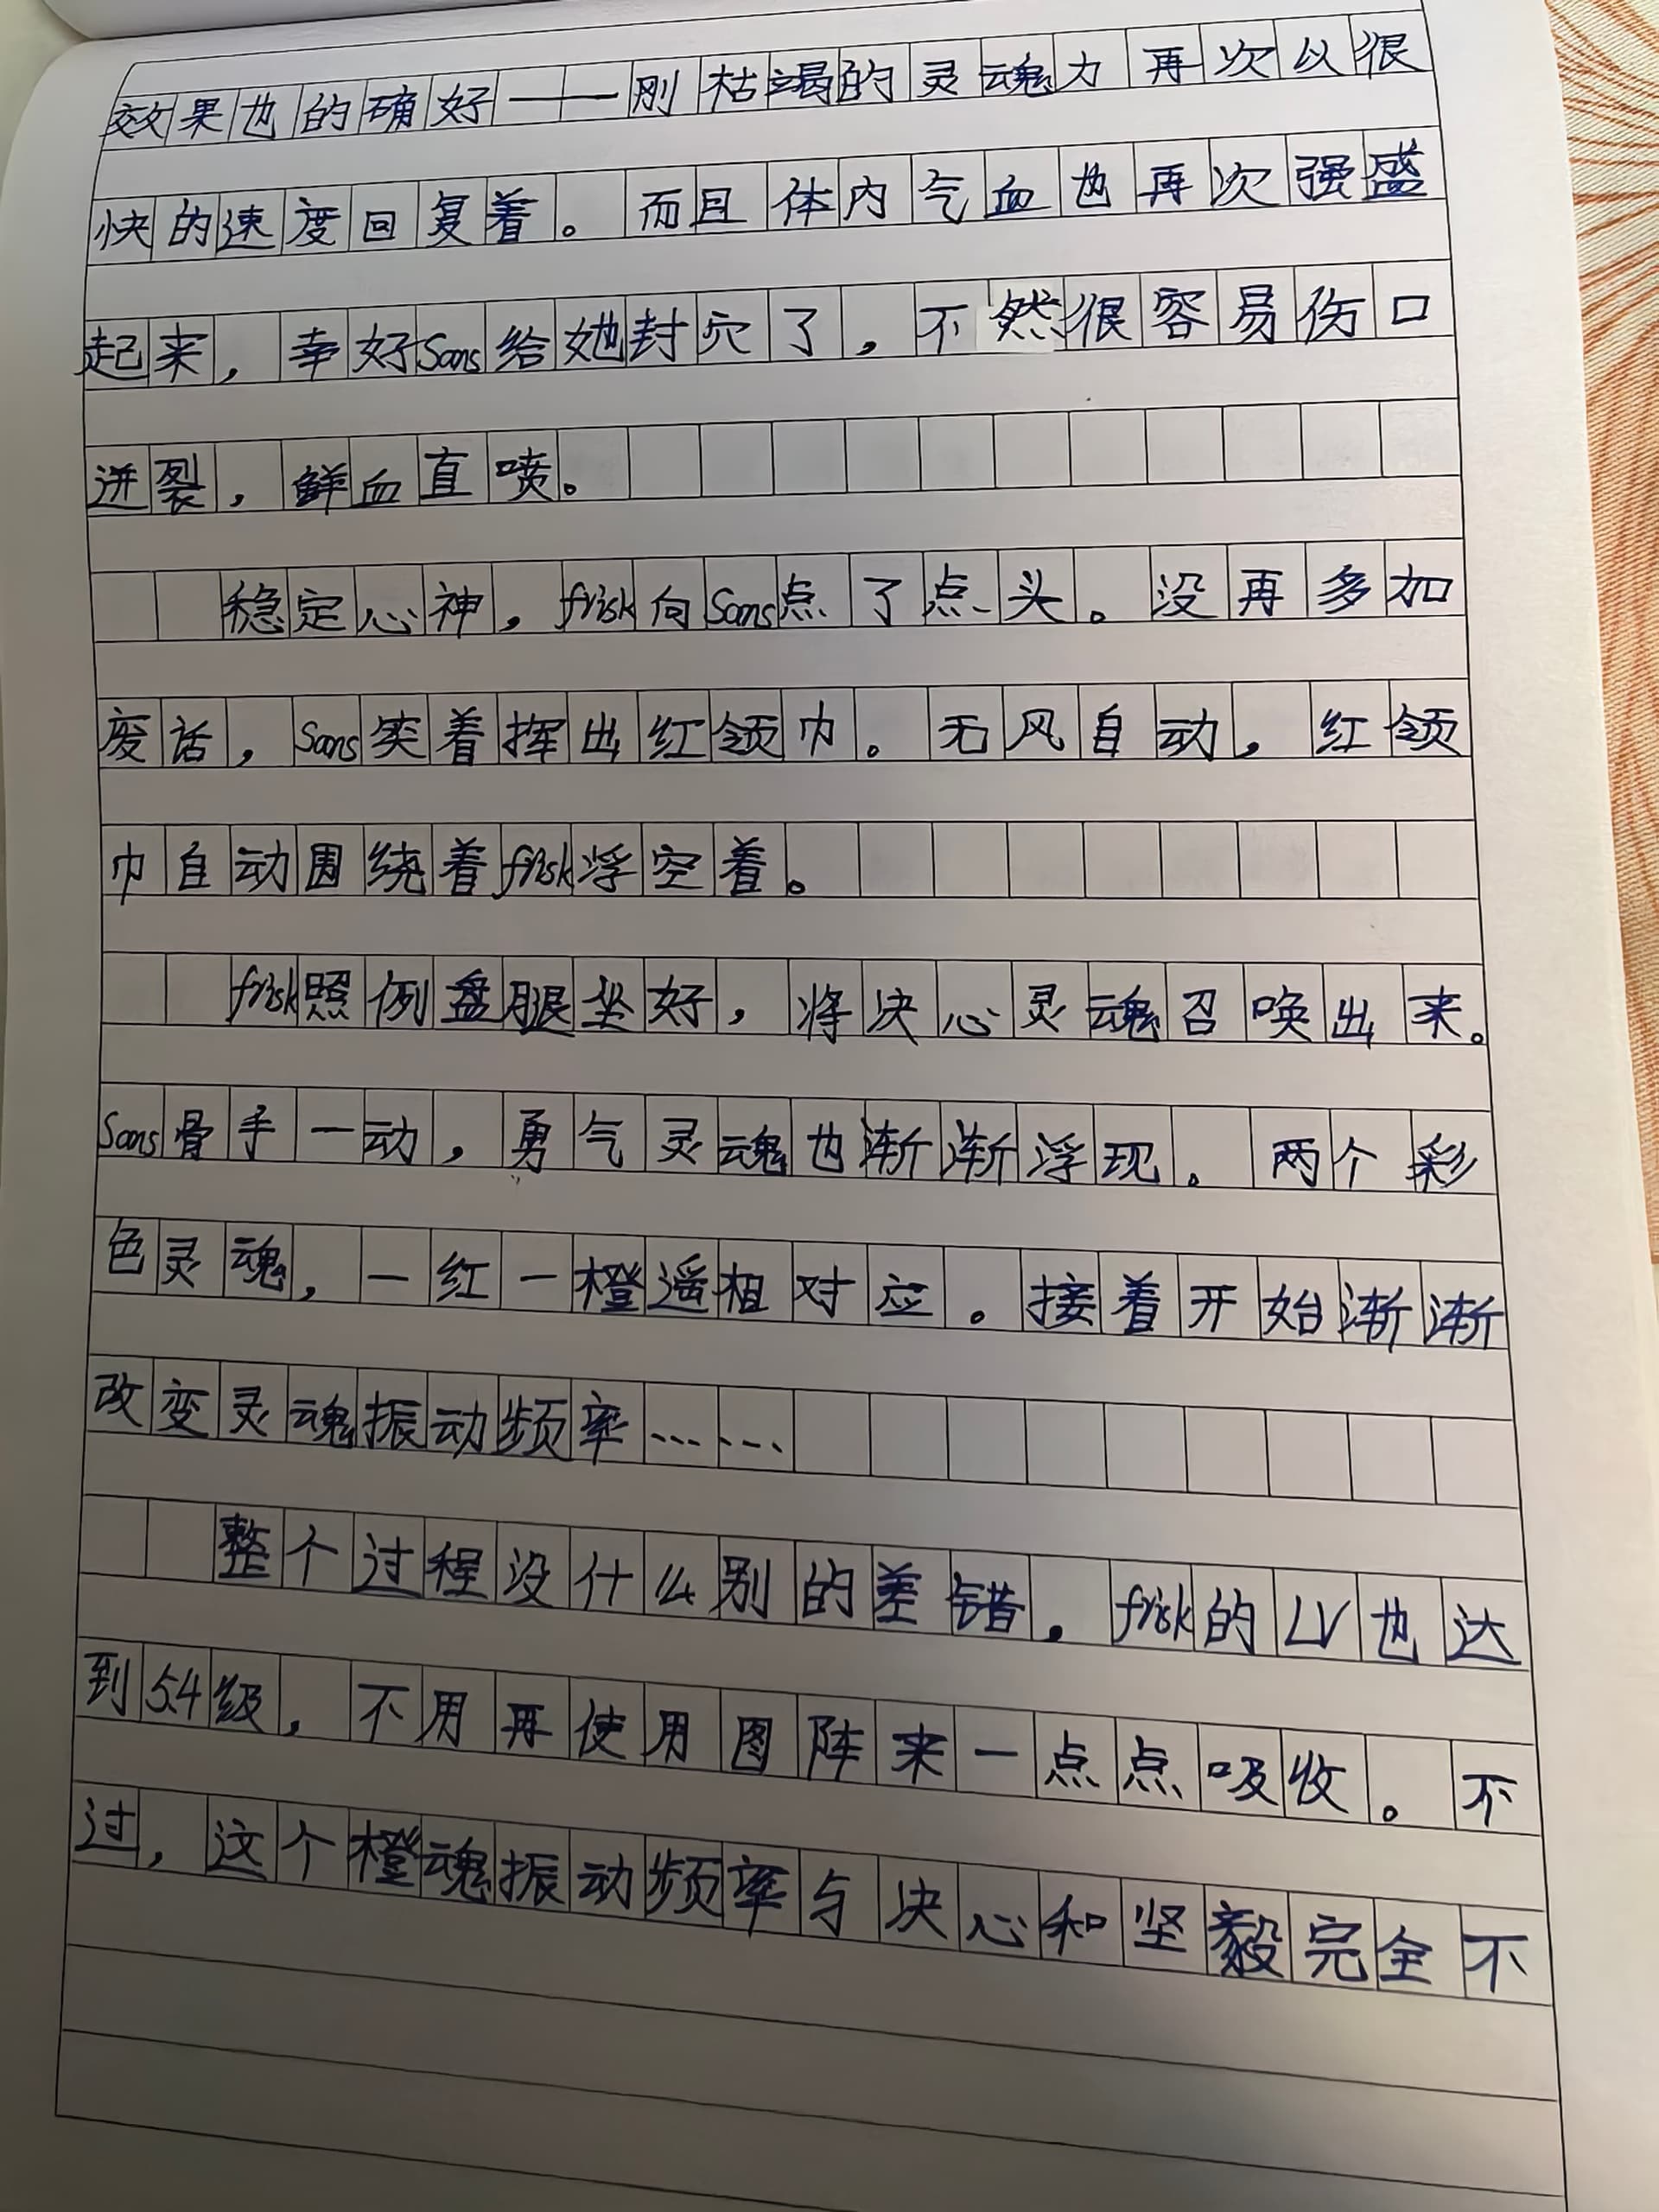 效果也的确好——刚枯竭的灵魂力再次以很
快的速度回复着。而且体内气血也再次强盛
起来，幸好Sans给她封穴了，不然很容易伤口
迸裂，鲜血直喷。
稳定心神，frisk向Sans点了点头。没再多加
废话，Sans笑着挥出红领巾。无风自动，红领
巾自动围绕着frisk浮空着。
frisk照例盘腿坐好，将决心灵魂召唤出来。
Sans骨手一动，勇气灵魂也渐渐浮现。两个彩
色灵魂，一红一橙遥相对应。接着开始渐渐
改变灵魂振动频率……
整个过程没什么别的差错，frisk的LV也达
到5.4级，不用再使用图阵来一点点吸收。不
过，这个橙魂振动频率与决心和坚毅完全不